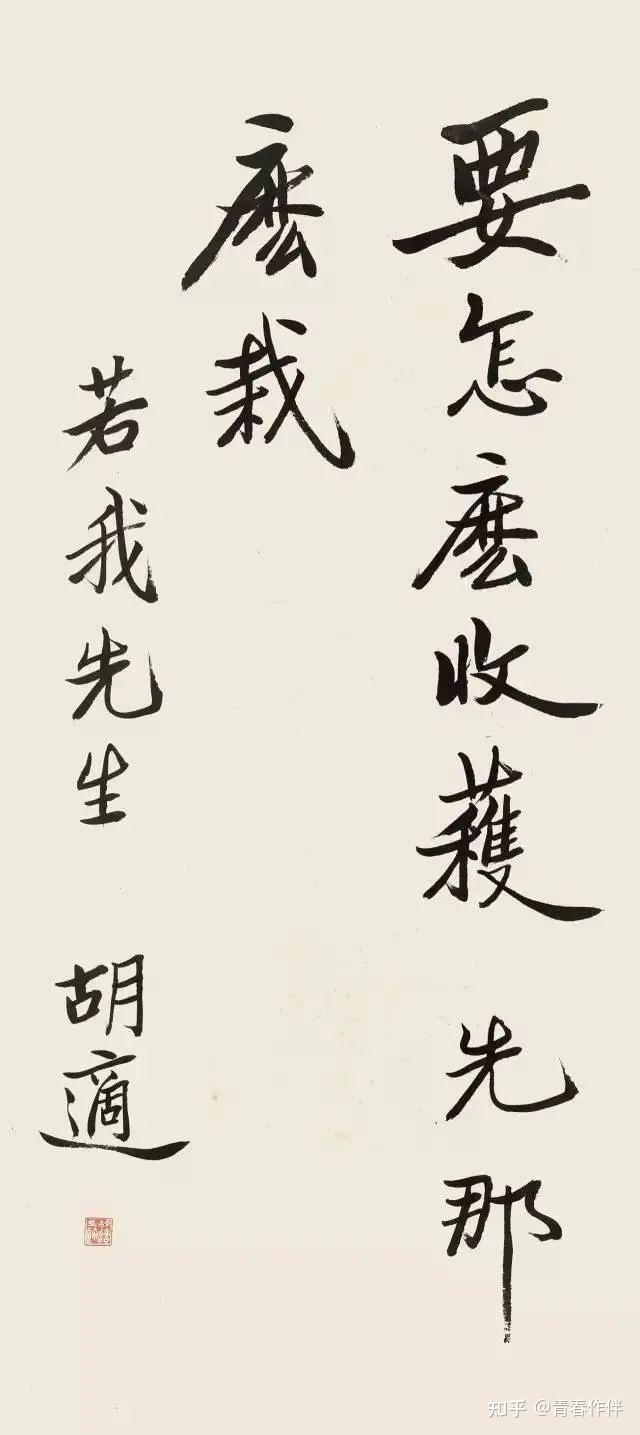 要怎麽收穫 先那
麽栽
若我先生 胡適
知乎 @青春作伴